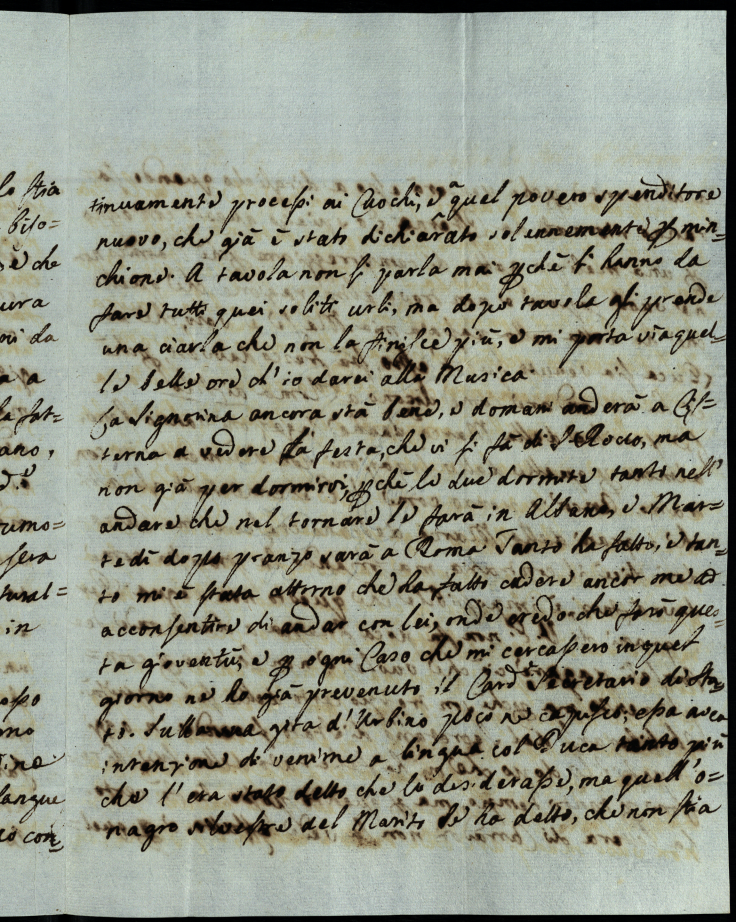 lo stia
biso=
è che
ura
oi da
a a
la fat=
ano,
umo=
sera
tural=
in
esso
no
langue
io con=
tinuamente processi ai Cuochi, e a quel povero spenditore
nuovo, che già è stato dichiarato solennemente p min=
chione. A tavola non si parla mai pchè si hanno da
fare tutti quei soliti urli, ma dopo tavola gli prende
una ciarla che non la finisce più, e mi porta via quel=
le belle ore ch'io darei alla Musica
La Signorina ancora stà bene, e domani anderà a Cis=
terna a vedere la festa, che vi si fà di S. Rocco, ma
non già per dormirvi, pchè le due dormite tanto nell'
andare che nel tornare le farà in Albano, e Mar=
tedì dopo pranzo sarà a Roma Tanto ha fatto, e tan=
to mi è stata attorno che ha fatto cadere ancor me ad
acconsentire di andar con lei, onde credo che farò ques=
ta gioventù, e p ogni Caso che mi cercassero in quel
giorno ne ho già prevenuto il Card. Secretario di Sta=
to. Sulla gita d'Urbino poco ne capisco; essa avea
intenzione di venirne a lingua col Duca tanto più
che l'era stato detto che lo desiderasse, ma quell'o=
nagro silvestre del Marito le ha detto, che non stia